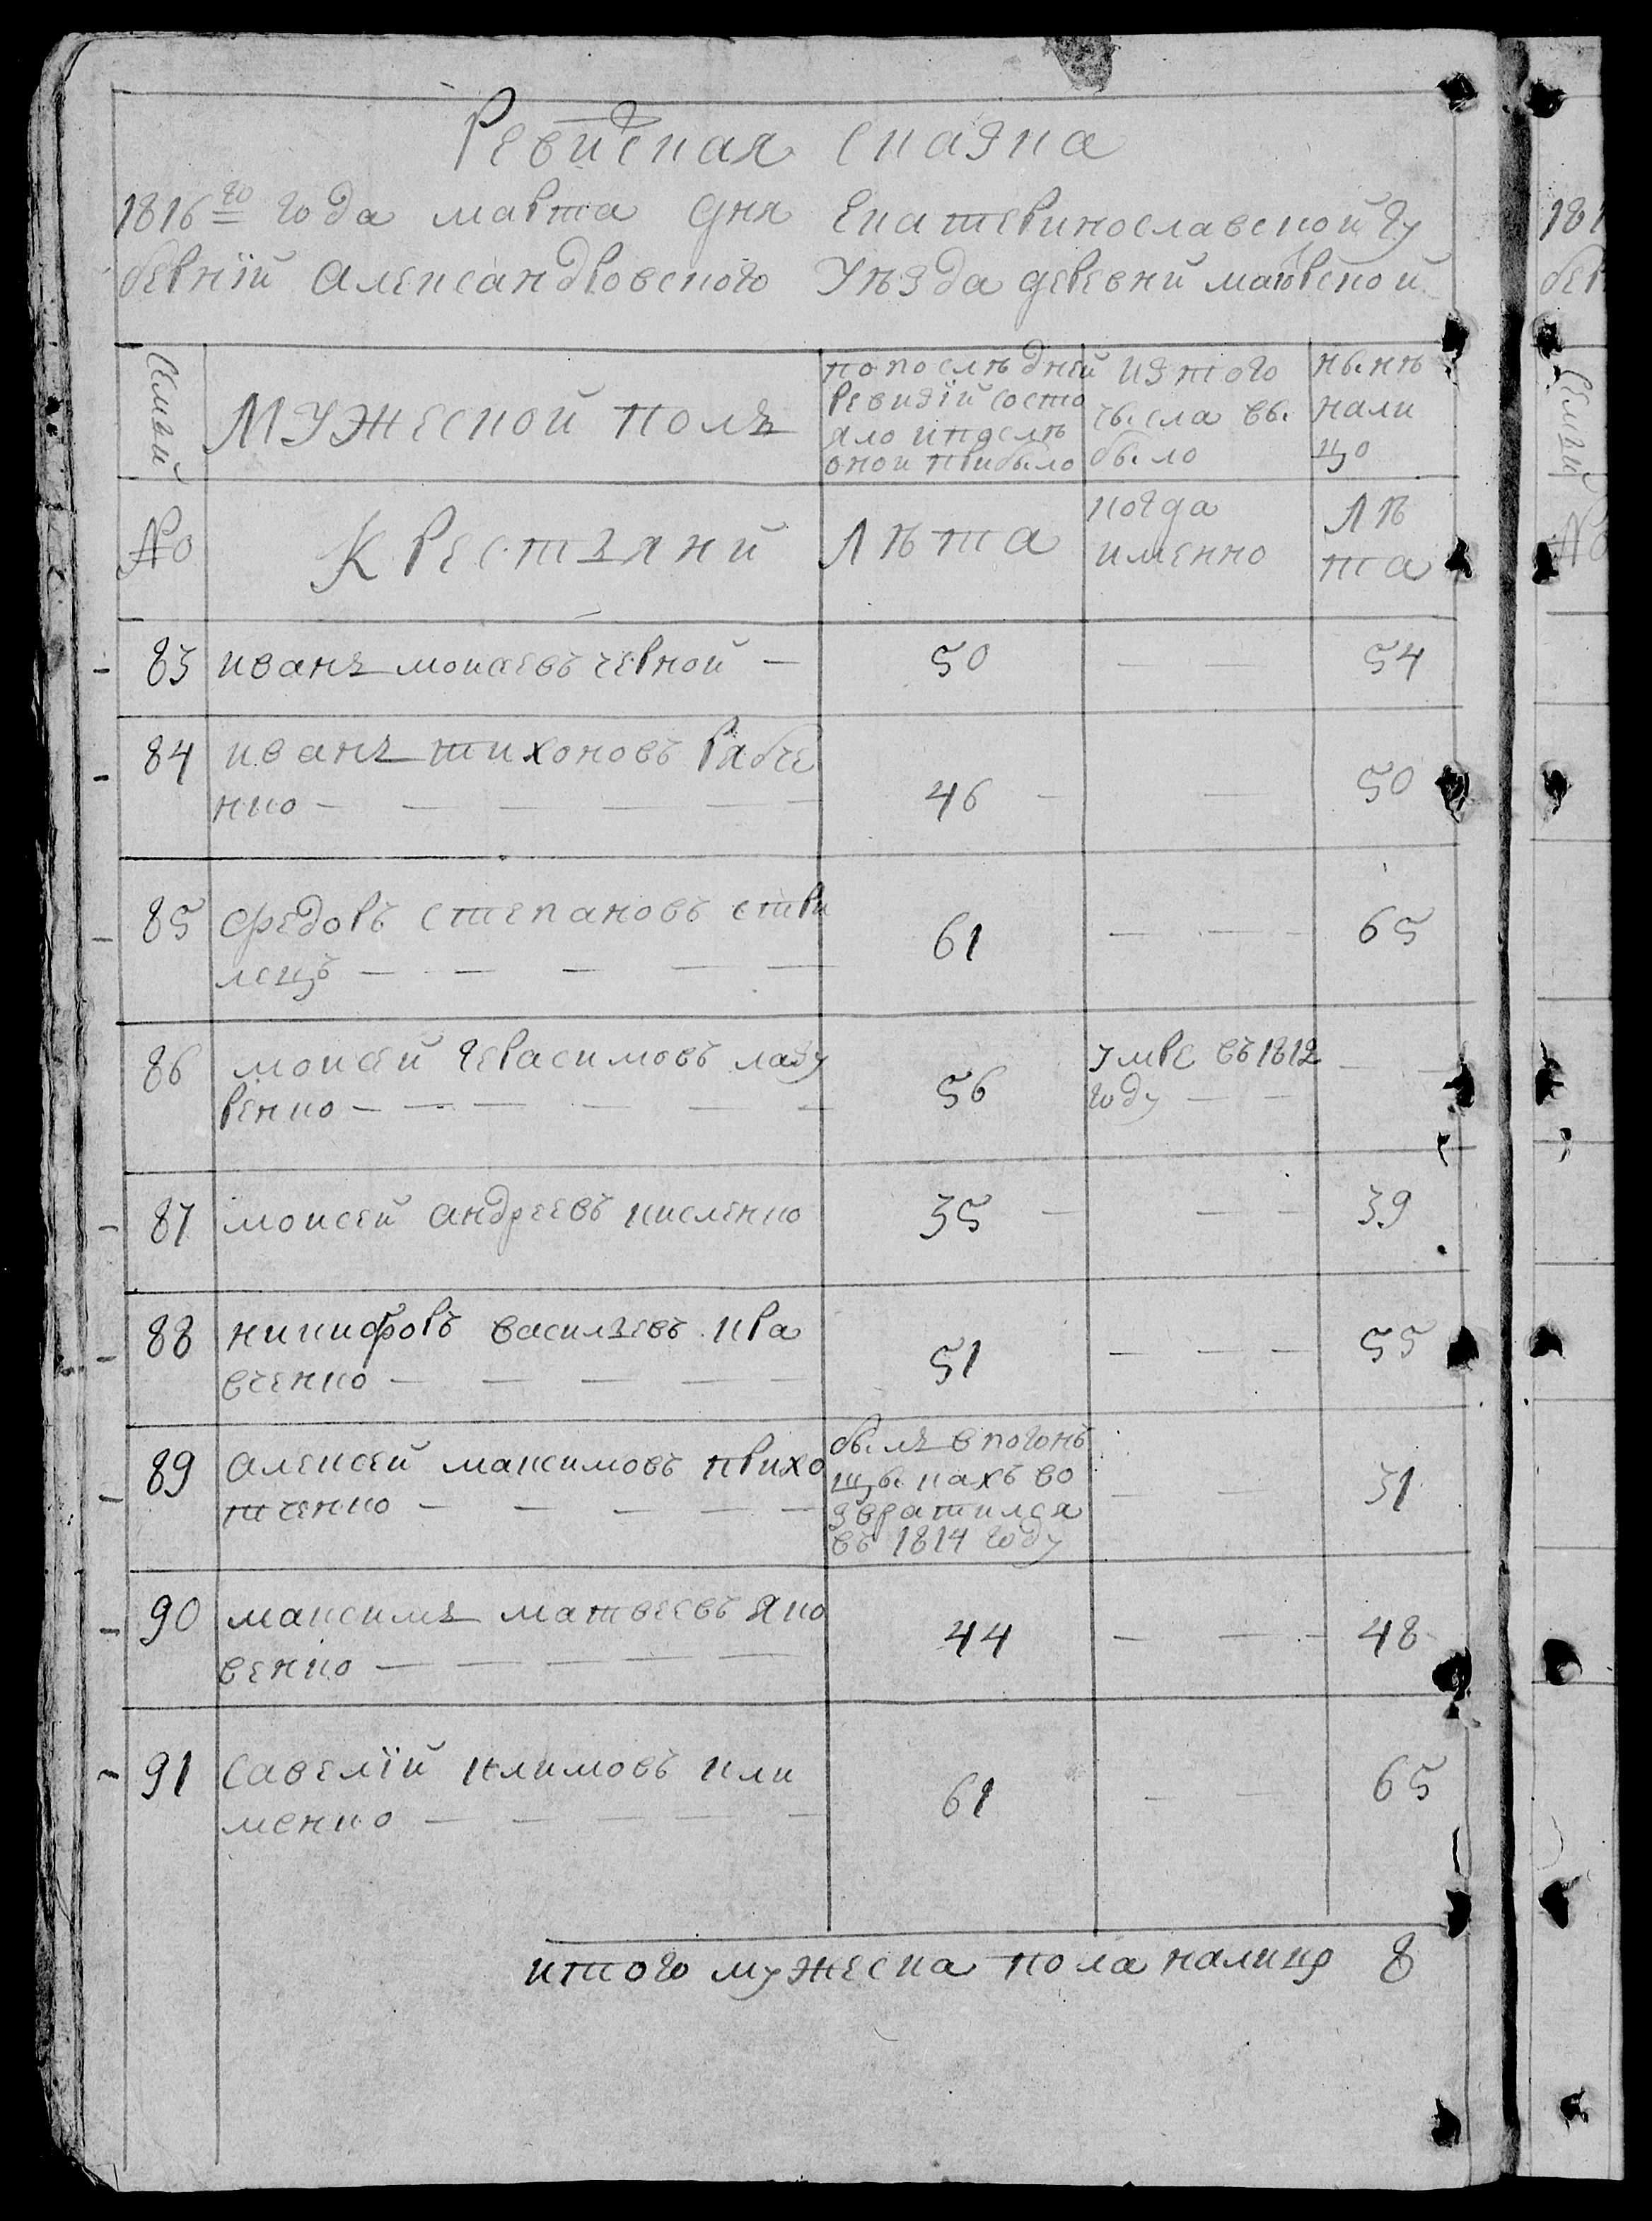 Ревиская сказка
1816го года марта дня Екатеринославской гу
бернїй Александровского Уѣзда деревнй маiорской
Семьй
мужеской полъ
по последней
ревизїй состо
яло ипослѣ
оной прибыло
Из того
числа вы
было
нынѣ
нали
цо
№
Крестъянй
лѣта
когда
именно
лѣ
та
83 иванъ моисѣевъ черной — 50 — — 54
84 иванъ тихоновъ рябче
нко — — — — — — 46 — — 50
85 федоръ степановъ стри
лецъ — — — — — 61 — — — 65
86 моисей герасимовъ лазу
ренко — — — — — — 56
умре въ 1812
году — — — —
87 моисей андреевъ кисленко 35 — — — 39
88 никифоръ васильевъ кра
вченко — — — — — 51 — — — 55
89 алексей максимовъ прихо
тченко — — — — —
былъ в погонь
щыкахъ во
звратился
въ 1814 году
— — 31
90 максимъ матвеевъ яко
венко — — — — — 44 — — — 48
91 савелїй климовъ кли
менко — — — — 61 — — 65
итого мужеска пола налицо 8
181
бер
Семьй
№